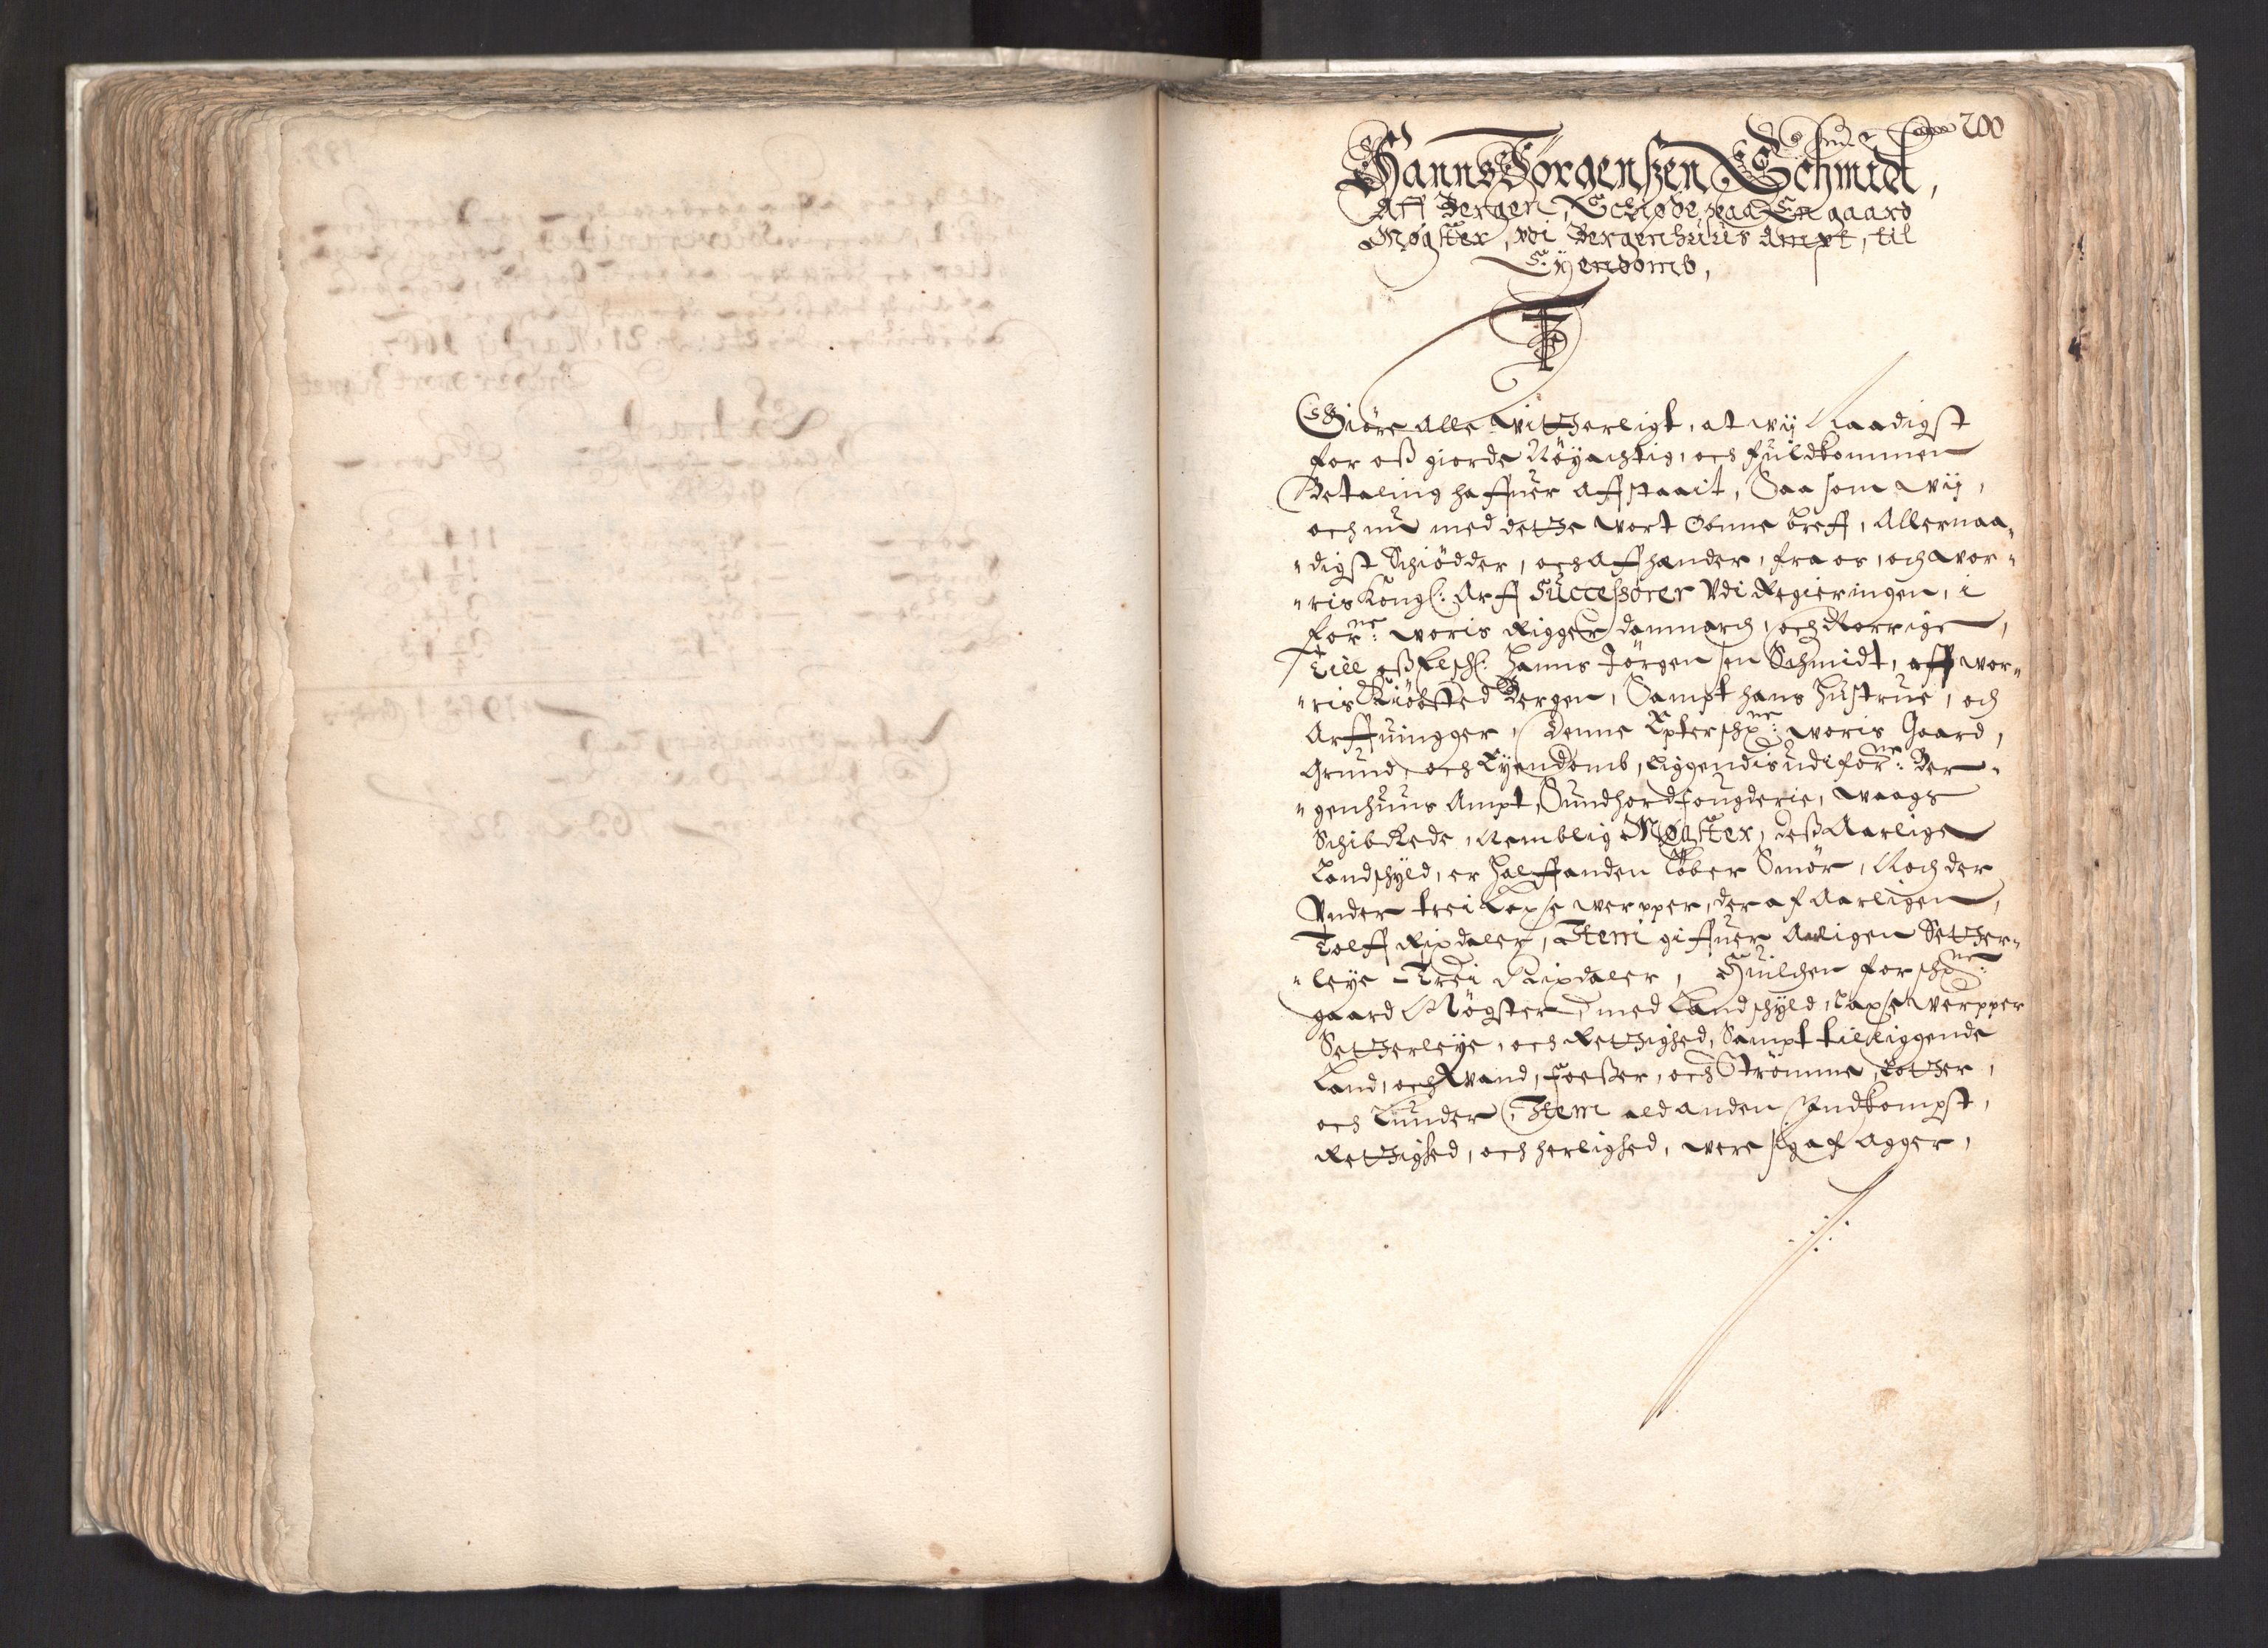 200
Hanns Jörgenszen Schmidt,
Aff Bergen, Schiøde paa En gaard
Møgster, udi Bergenhuus Ampt, til
Eÿendomb,
F3
Giöre Alle Witterligt, at wij Naadigst
for oß giorde Nöÿachtig, och fuldkommen
Betaling haffuer Affstaait, Saa som wij,
och nu med dette wort Obnne breff, Allernaa-
-digst Schiödder, och Affhænder, fra os, och wor-
-ris Kongl: Arff Successorer Vdi Regieringen, i
forne: woris Rigger Danmarch, och Norrige,
Till oß Elschl: Hanns Jörgensen Schmidt, aff wor-
-ris Kiöbsted Bergen, Sampt hans Hustrue, och
Arffuingger, Denne Epterschrne: woris Gaard,
Grund, och Eÿendomb, liggendis udi forne: Ber-
-genhuus Ampt, Sundhord fougderie, Waags
Schibrede, Nemblig Møgster, deß Aarlige
Landschyld, er Halffanden Löber Smör, Noch der
Vnder trei Laxe werpper, der af Aarligen,
Tolff Rixdaler, Item giffuer Aarligen Setter-
-leÿe Trei Rixdaler, Huilchen forschrne:
gaard Mögster, med Landschÿld, Laxe werpper
Setterleÿe, och Rettighed, Sampt tilliggende
Land, och Wand, Foeßer, och Strömme, Lotter,
och Lunder, Item ald anden Indkompst,
Rettighed, och herlighed, were sig af Agger,